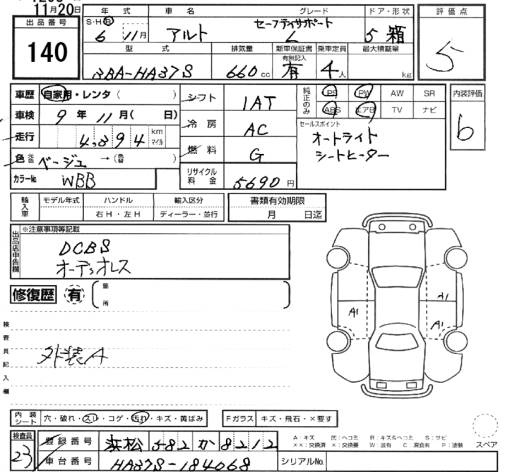 11月20日
年式 グレード ドア・形状 評価点
出品番号 S・H・R セーフティサポート
140 6年 11月 アルト L 5 箱 5
型式 排気量 新車保証書 乗車定員 最大積載量
有無記入
3BA-HA37S 660cc 有 4人 kg
車歴 自家用・レンタ( ) シフト 1AT 純正のみ PS PW AW SR 内装評価
車検 9年 11月( 日) 冷房 AC ABS エアB TV ナビ 6
走行 4,394 km マイル セールスポイント
色 ベージュ →(色 ) 燃料 G オートライト
シートヒーター
カラーNo WBB リサイクル料金 5690円
輸入車 モデル年式 ハンドル 輸入区分 書類有効期限
右H・左H ディーラー・並行 月 日迄
出品店申告欄 ※注意事項等記載
DCBS
オーディオレス
修復歴 有 ( 箇所 )
A1 A1
検査員記入欄
外装A
内装シート 穴・破れ・コゲ・キズ・黄ばみ Fガラス キズ・飛石・×要す
検査員 登録番号 浜松 582 か 8212 スペア
23 車台番号 HA37S-184068 シリアルNo.